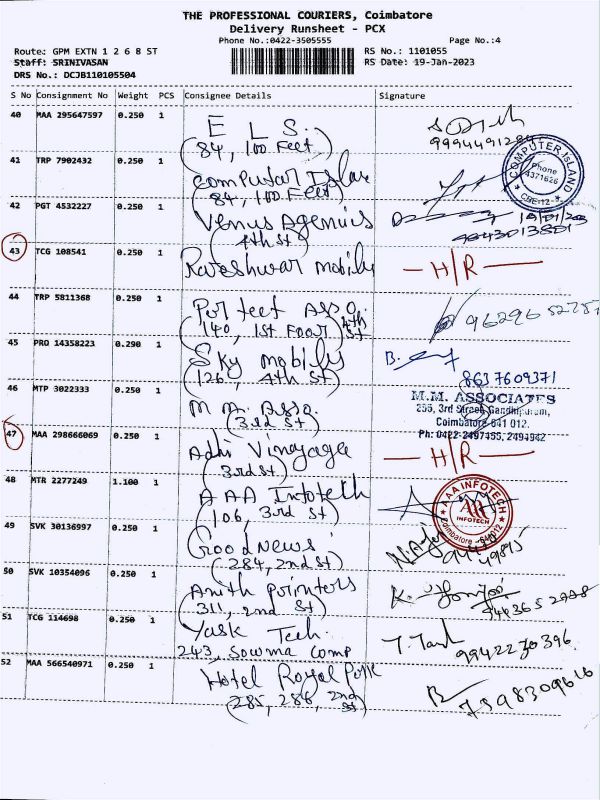 THE PROFESSIONAL COURIERS, Coimbatore
Delivery Runsheet - PCX
Phone No.:0422-3505555
Page No.:4
Route: GPM EXTN 1 2 6 8 ST
RS No.: 1101055
Staff: SRINIVASAN
RS Date: 19-Jan-2023
DRS No.: DCJB110105504
S No Consignment No Weight PCS Consignee Details Signature
40 MAA 295647597 0.250 1 E L S.
(84, 100 Feet)
9994491284
41 TRP 7902432 0.250 1 Computar Islan
(84, 100 Feet)
COMPUTER ISLAND
Phone
4371626
CBE-12
42 PGT 4532227 0.250 1 Venus Agencies
(4th St)
43 TCG 108541 0.250 1 Rajeshwar mobily
H/R
44 TRP 5811368 0.250 1 Perfect Asso.
(140, 1st Foor) 4th St
45 PRO 14358223 0.290 1 Sky mobily
(126, 4th St)
B.
8637609371
46 MTP 3022333 0.250 1 M M. Asso.
(3rd St)
M.M. ASSOCIATES
256, 3rd Street, Gandhipuram,
Coimbatore-641 012.
Ph: 0422-2497455, 2494942
47 MAA 298666069 0.250 1 Adhi Vinayaga
(3rd St)
H/R
48 MTR 2277249 1.100 1 A AA Infotech
(106, 3rd St)
AAA INFOTECH
INFOTECH
Coimbatore
49 SVK 30136997 0.250 1 Good News
(284, 2nd St)
50 SVK 10354096 0.250 1 Anith Printers
(311, 2nd St)
K.
51 TCG 114698 0.250 1 Yask Tech.
243, Sowma Comp
9942270396
52 MAA 566540971 0.250 1 Hotel Royal Park
(285, 286, 2nd St)
7598309616